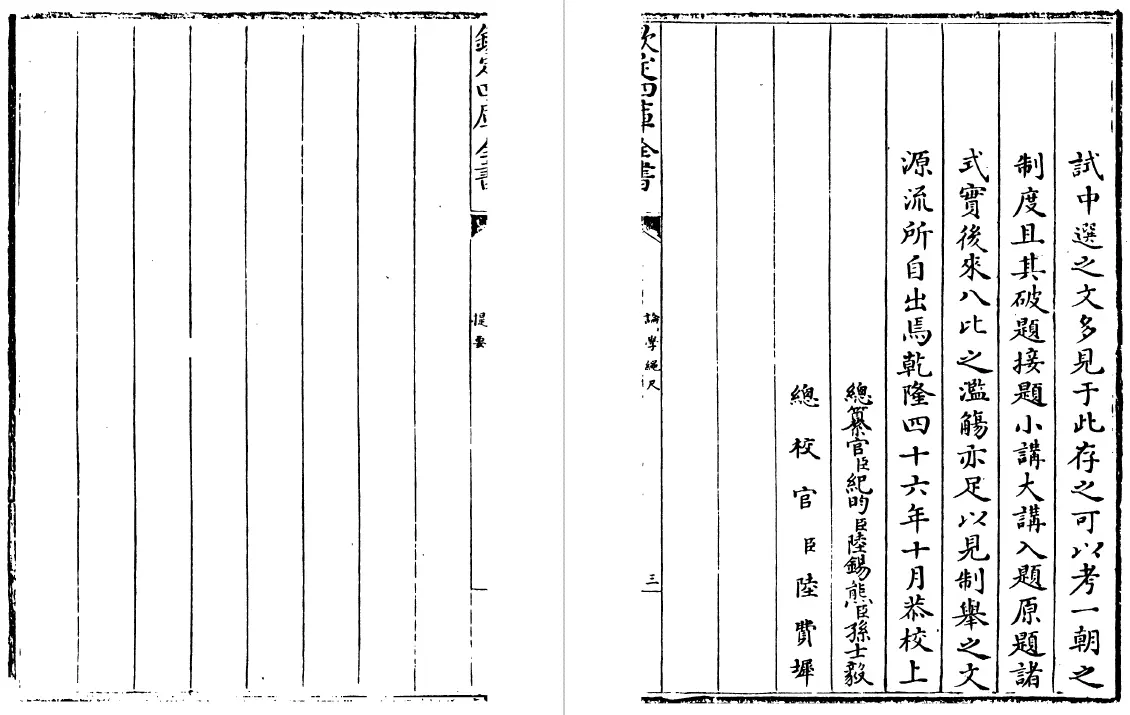 試中選之文多見于此存之可以考一朝之
制度且其破題接題小講大講入題原題諸
式實後來八比之濫觴亦足以見制舉之文
源流所自出焉乾隆四十六年十月恭校上
總纂官臣紀昀臣陸錫熊臣孫士毅
總校官臣陸費墀
欽定四庫全書
論學繩尺
三
欽定四庫全書
提要